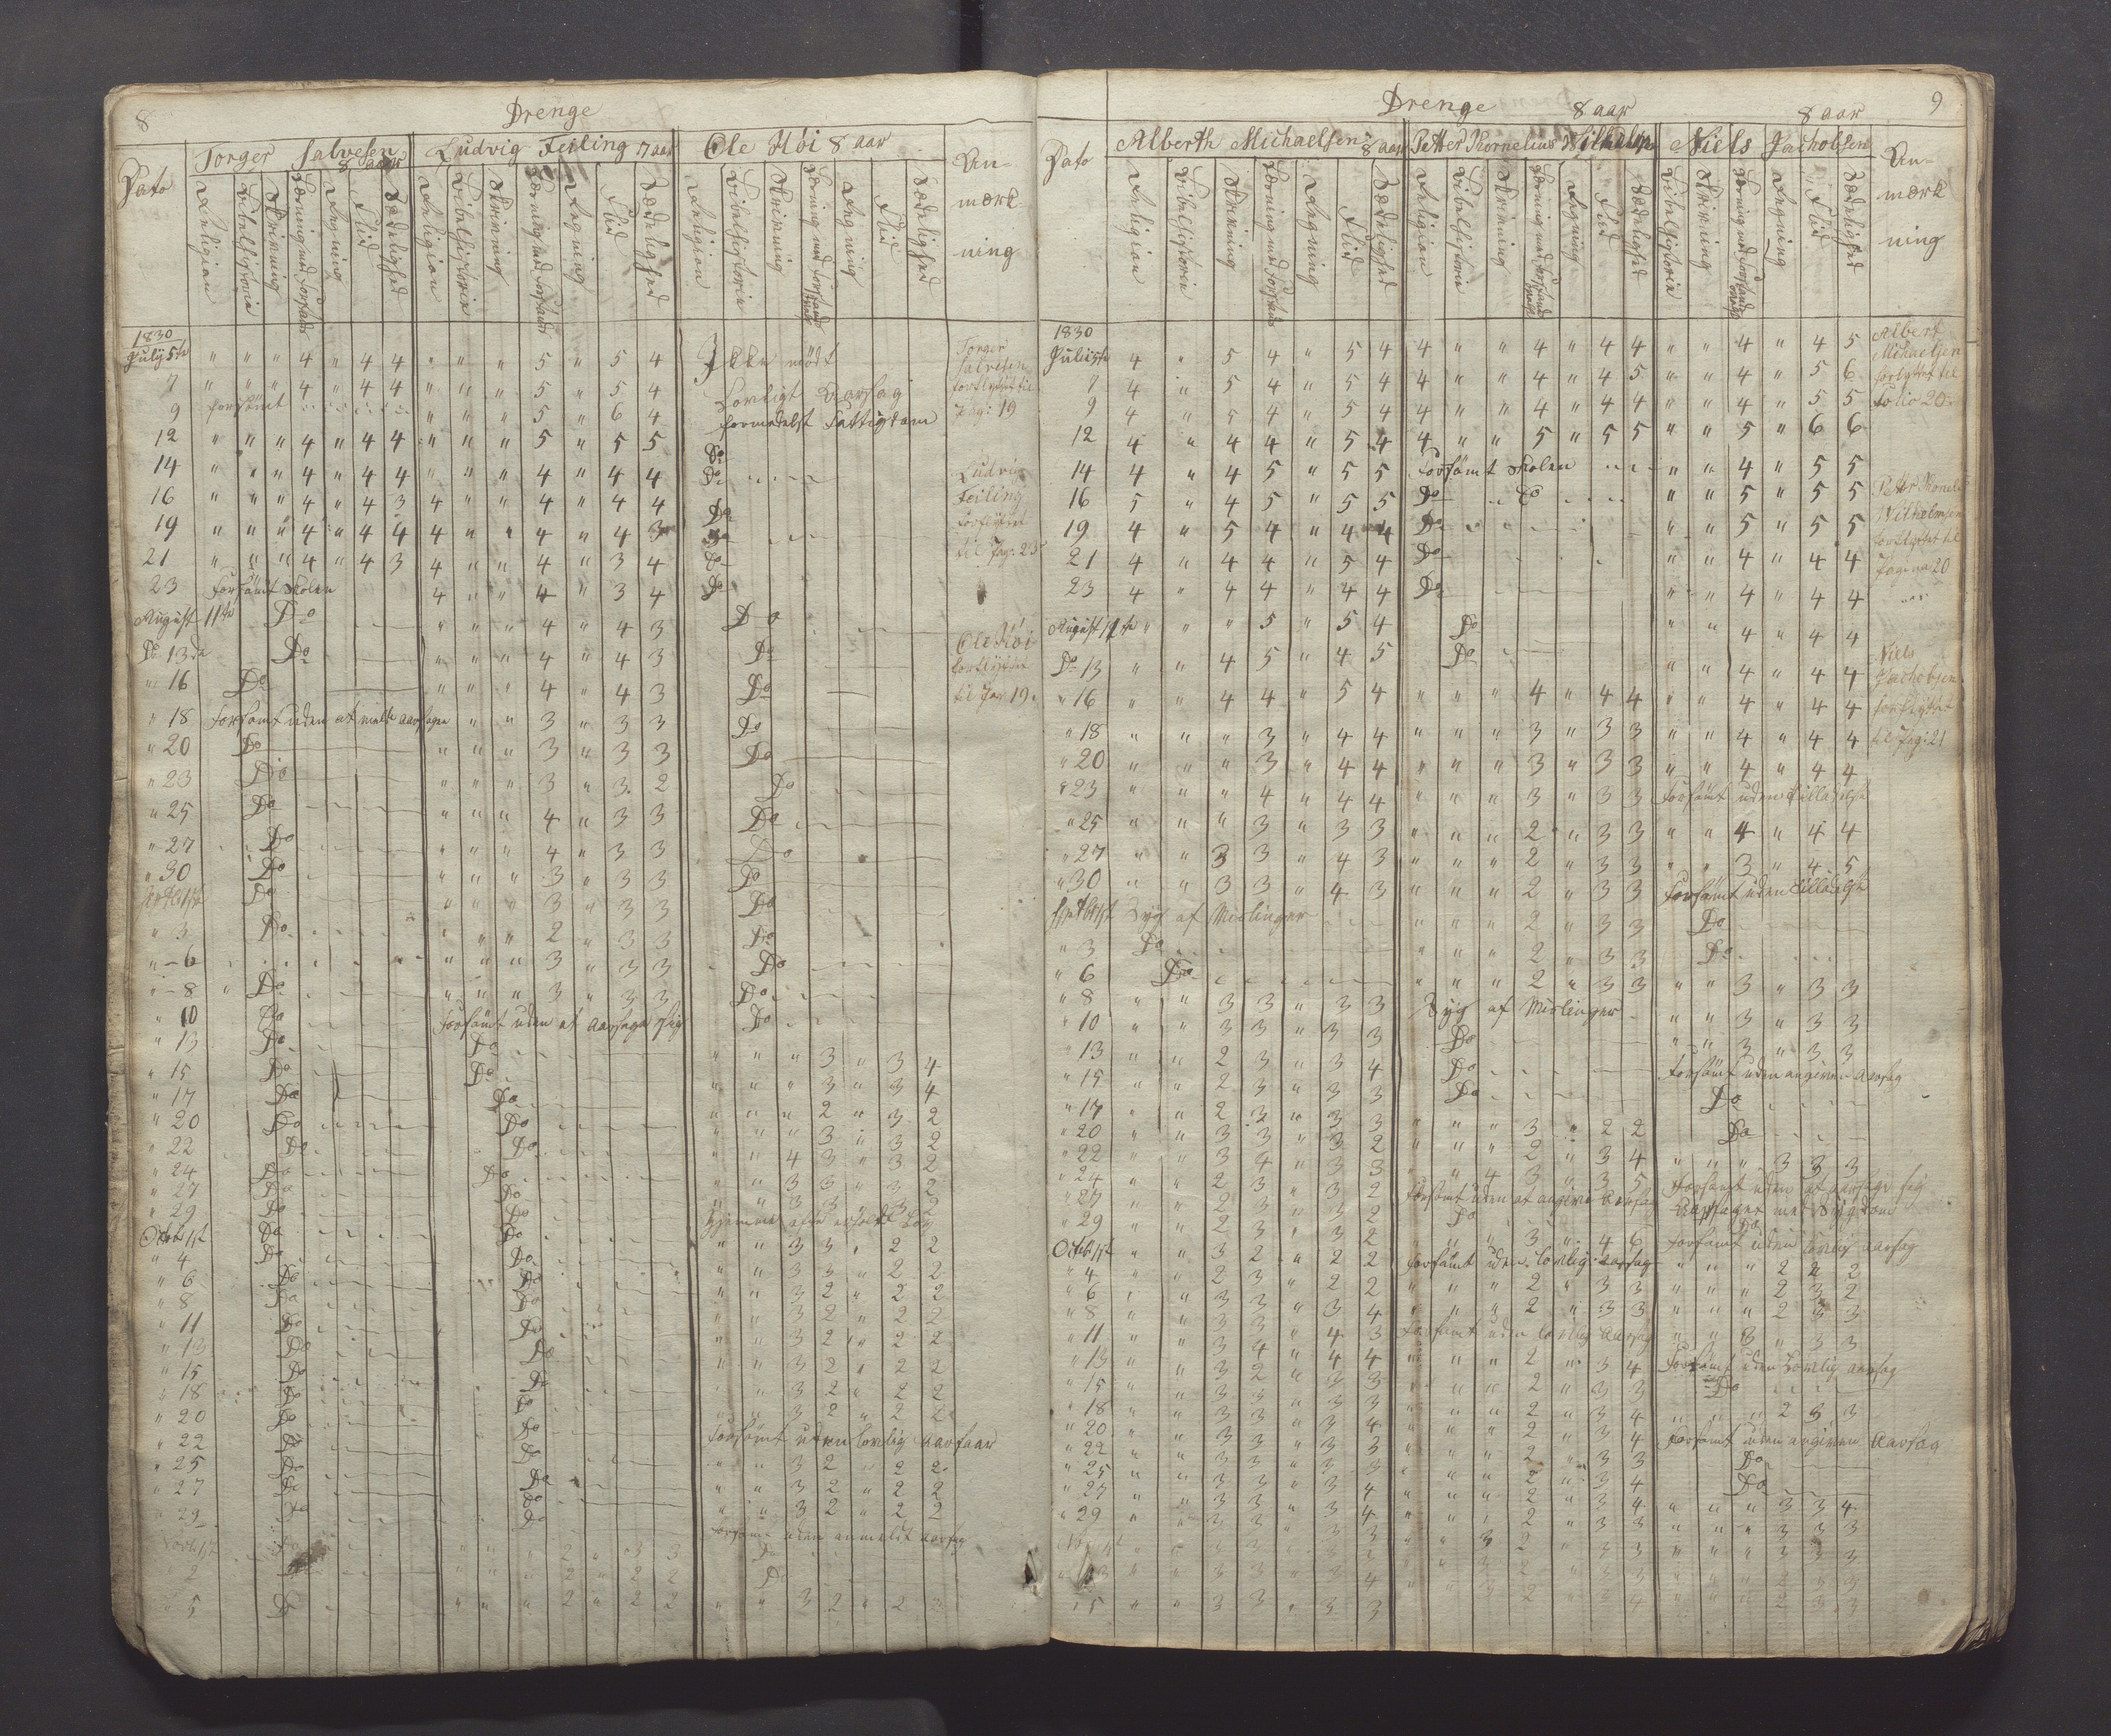 8
Drenge
Dato
Torger Salvesen 8 aar
Ludvig Feiling 7 aar
Ole Höi 8 aar
An-
mærk-
ning
Religion Bibelhistorie Skrivning Læsning med Forstand Regning Flid Sædelighed
Religion Bibelhistorie Skrivning Læsning med Forstand Regning Flid Sædelighed
Religion Bibelhistorie Skrivning Læsning med Forstand Regning Flid Sædelighed
1830
July 5te " " " 4 " 4 4 " " " 5 " 5 4 Ikke mödt
7 " " " 4 " 4 4 " " " 5 " 5 4 Lovligt Aarsag
9 forsömt " " " 5 " 6 4 formedelst Fattigdom
12 " " " 4 " 4 4 " " " 5 " 5 5 Do
14 " " " 4 " 4 4 " " " 4 " 4 4 Do
16 " " " 4 " 4 3 4 " " 4 " 4 4 Do
19 " " " 4 " 4 4 4 " " 4 " 4 3 Do
21 " " " 4 " 4 3 4 " " 4 " 3 4 Do
23 Forsömt Skolen 4 " " 4 " 3 4 Do
August 11te Do " " " 4 " 4 3 Do
Do 13de Do " " " 4 " 4 3 Do
" 16 Do " " " 4 " 4 3 Do
" 18 forsömt uden at melde aarsagen " " 3 " 3 3 Do
" 20 Do " " " 3 " 3 3 Do
" 23 Do " " " 3 " 3 2 Do
" 25 Do " " " 4 " 3 3 Do
" 27 Do " " " 4 " 3 3 Do
" 30 Do " " " 3 " 3 3 Do
Do " " " 3 " 3 3 Do
" 3 Do " " " 2 " 3 3 Do
" 6 " " " 3 " 3 3 Do
" 8 Do " " " 3 " 3 3 Do
" 10 Do Forsömt uden at aarsage sig Do
" 13 Do Do " " " 3 " 3 4
" 15 Do Do " " " 3 " 3 4
" 17 Do Do " " " 2 " 3 2
" 20 Do Do " " " 3 " 3 2
" 22 Do Do " " 4 3 " 3 2
" 24 Do Do " " 3 3 " 3 2
" 27 Do Do " " 3 3 " 3 2
" 29 Do Do
Octobr 1st Do Do " " 3 3 " 2 2
" 4 Do Do " " 3 3 " 2 2
" 6 Do Do " " 3 2 " 2 2
" 8 Do Do " " 3 2 " 2 2
" 11 Do Do " " 3 2 " 2 2
" 13 Do Do " " 3 2 " 2 2
" 15 Do Do " " 3 2 " 2 2
" 18 Do Do " " 3 2 " 2 2
" 20 Do Do Forsömt uden lovlig
" 22 Do Do " " 3 2 " 2 2
" 25 Do Do " " 3 2 " 2 2
" 27 Do Do " " 3 2 " 2 2
" 29 Do Do uden anmeldt aarsag
" " " 2 " 3 3 Do
" 2 " " " 2 " 2 2 Do
" 5 Do " " " 2 " 2 2 " " 3 2 " 2 2
Torger
Salvesen
forflyttet til
Pag: 19
Ludvig
Feiling
forflyttet
til Pag: 25
Ole Höi
forflyttet
til Pag 19.
9
Drenge
Dato
Alberth Michaelsen 8 aar
Petter Kornelius Wilhelmsen 8 aar
Niels Jachobsen 8 aar
An-
mærk
ning
Religion Bibelhistorie Skrivning Læsning med Forstand Regning Flid Sædelighed
Religion Bibelhistorie Skrivning Læsning med Forstand Regning Flid Sædelighed
Bibelhistorie Skrivning Læsning med Forstand Regning Flid Sædelighed
1830
Juli 5te 4 " 5 4 " 5 4 4 " " 4 " 4 4 " " 4 " 4 5
7 4 " 5 4 " 5 4 4 " " 4 " 4 5 " " 4 " 5 6
9 4 " 5 4 " 5 4 4 " " 4 " 4 4 " " 4 " 5 5
12 4 " 4 4 " 5 4 4 " " 5 " 5 5 " " 5 " 6 6
14 4 " 4 5 " 5 5 Forsömt Skolen " " 4 " 5 5
16 5 " 4 5 " 5 5 Do Do " " 5 " 5 5
19 4 " 5 4 " 4 4 Do " " 5 " 5 5
21 4 " 4 4 " 5 4 Do " " 4 " 4 4
23 4 " 4 4 " 4 4 Do " " 4 " 4 4
August 11te " " " 5 " 5 4 Do " " 4 " 4 4
Do 13 " " 4 5 " 4 5 Do " " 4 " 4 4
" 16 " " 4 4 " 5 4 " " " 4 " 4 4 " " 4 " 4 4
" 18 " " " 3 " 4 4 " " " 3 " 3 3 " " 4 " 4 4
" 20 " " " 3 " 4 4 " " " 3 " 3 3 " " 4 " 4 4
" 23 " " " 4 " 4 4 " " " 3 " 3 3 Forsömt uden tilladelse
" 25 " " " 3 " 3 3 " " " 2 " 3 3 " " 4 " 4 4
" 27 " " 3 3 " 4 3 " " " 2 " 3 3 " " 3 " 4 5
" 30 " " 3 3 " 4 3 " " " 2 " 3 3 Forsömt uden tilladelse
Syg af Mislinger " " " 2 " 3 3 Do
" 3 Do " " " 2 " 3 3 Do
" 6 Do " " " 2 " 3 3 " " 3 " 3 3
" 8 " " 3 3 " 3 3 Syg af Mislinger " " 3 " 3 3
" 10 " " 3 3 " 3 3 Do " " 3 " 3 3
" 13 " " 2 3 " 3 4 Do Forsömt uden angiven Aarsag
" 15 " " 2 3 " 3 3 Do Do
" 17 " " 2 3 " 3 3 " " " 3 " 2 2 Do
" 20 " " 3 3 " 3 2 " " " 2 " 3 4 " " " 3 3 3
" 22 " " 3 4 " 3 3 " " 4 3 " 3 5 Forsömt uden at aarsage sig
" 24 " " 2 3 " 3 2 Forsömt uden at angive Aarsag Aarsaget med Sygdom
" 27 " " 2 3 " 3 2 Do Do
" 29 " " 2 3 " 3 2 " " " 3 " 4 6 Forsömt uden lovlig aarsag
Octobr 1st " " 3 2 " 2 2 Forsömt uden lovlig aarsag " " " 2 2 2
" 4 " " 2 3 " 2 2 " " " 2 " 3 3 " " " 2 3 2
" 6 " " 3 3 " 3 4 " " " 2 " 3 3 " " " 2 3 3
" 8 " " 3 3 " 4 3 Forsömt uden lovlig Aarsag " " 3 " 3 3
" 11 " " 3 4 " 4 4 " " " 2 " 3 4 Forsömt uden Lovlig aarsag
" 13 " " 3 2 " 3 3 " " " 2 " 3 3 Do
" 15 " " 3 3 " 3 3 " " " 2 " 3 4 " " " 2 3 3
" 18 " " 3 3 " 3 4 " " " 2 " 3 4 Forsömt uden angiven Aarsag
" 20 " " 3 3 " 3 3 " " " 2 " 3 3 Do
" 22 " " 3 3 " 3 3 " " " 2 " 3 4 Do
" 25 " " 3 3 " 3 4 " " " 2 " 3 4 " " " 3 3 4
" 27 " " 3 3 " 3 4 " " " 2 " 3 3 " " " 3 3 3
" 29 " " 3 3 " 3 3 " " 3 2 " 3 3 " " " 3 3 3
" 5 " " 3 3 " 3 3
Albert
Michaelsen
forflyttet til
Folio 20.
Petter Kornelius
Wilhelmsen
forflyttet til
Pagina 20
Niels
Jachobsen
forflyttet
til Pag: 21